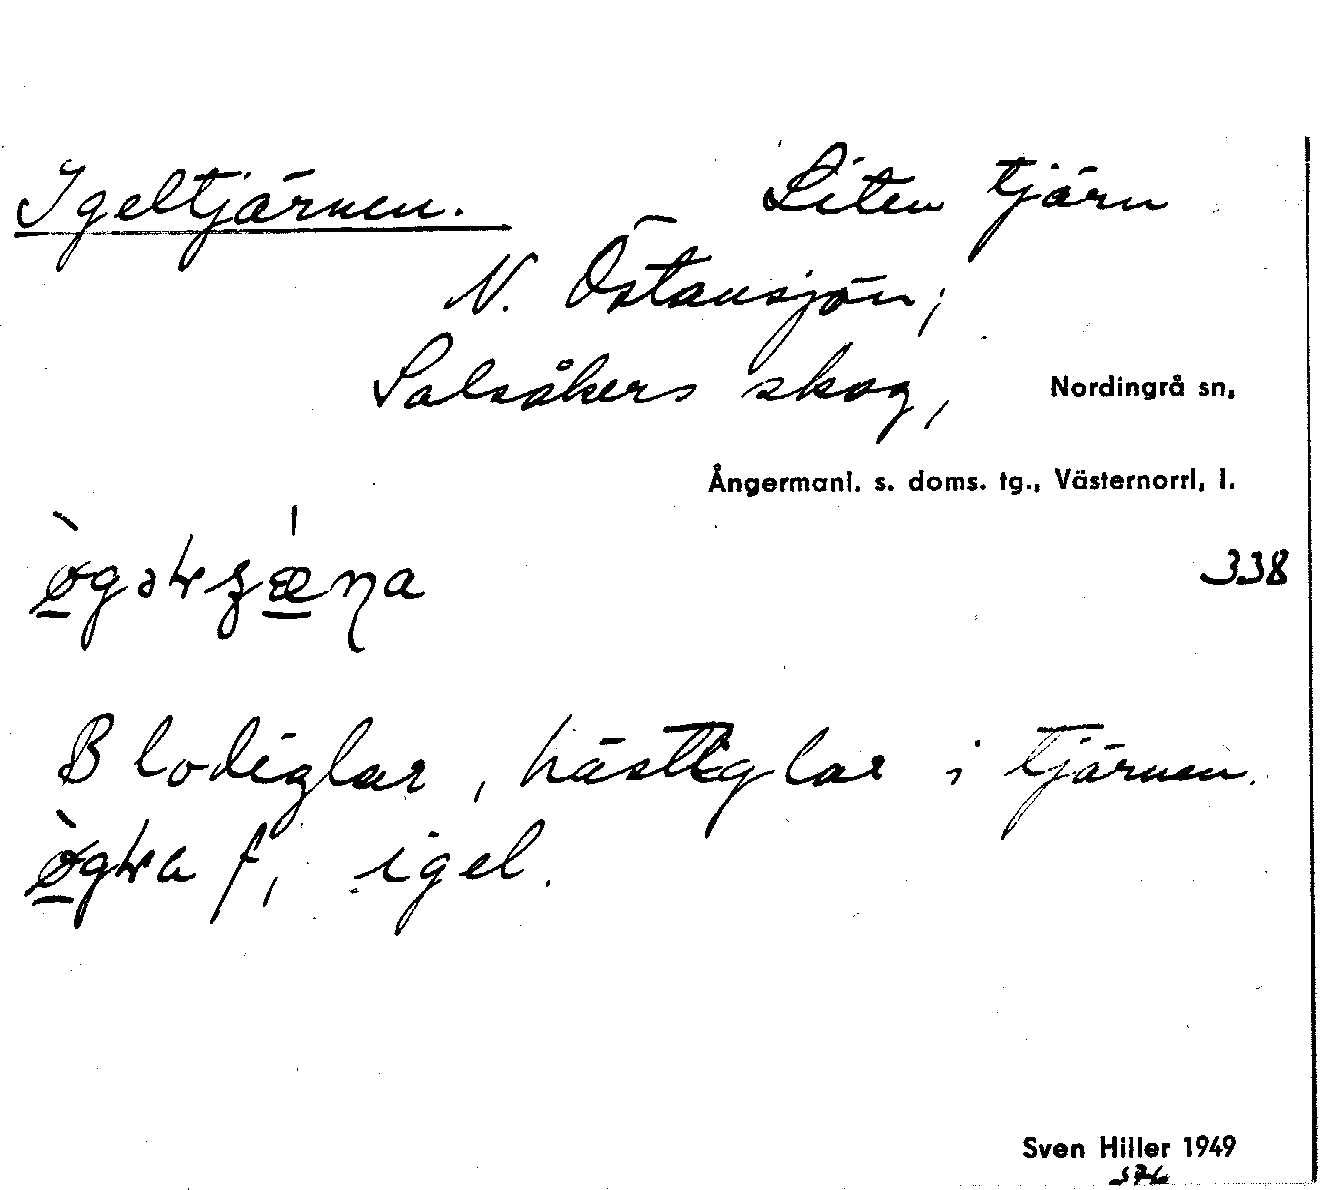 Igeltjärnen. Liten tjärn
N. Östansjön;
Salsåkers skog, Nordingrå sn,
Ångermanl. s. doms. tg., Västernorrl, l.
338
Blodiglar, hästiglar i tjärnen.
f, igel.
Sven Hiller 1949